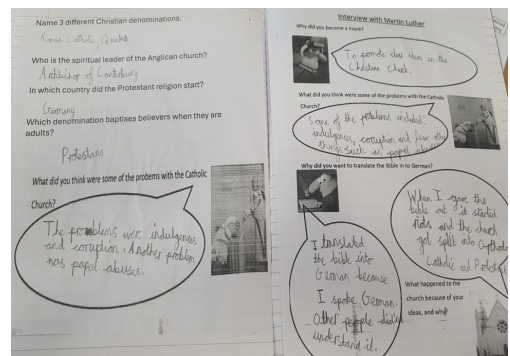 Name 3 different Christian denominations.
Roman Catholic, Quaker
Who is the spiritual leader of the Anglican church?
Archbishop of Canterbury
In which country did the Protestant religion start?
Germany
Which denomination baptises believers when they are
adults?
Protestans
What did you think were some of the probems with the Catholic
Church?
The promblems were indulgences
and corruption. Another problem
was papal abuses.
Interview with Martin Luther
Why did you become a monk?
To promote ideas in the
Christian Church.
What did you think were some of the probems with the Catholic
Church?
Some of the problems included:
indulgences, corruption and few other
things such as papal abuses
Why did you want to translate the Bible in to German?
I translated
the bible into
German because
I spoke German.
Other people didn't
understand it.
When I gave the
bible out it started
riots and the church
got split into Orthodox
Catholic and Protestant
What happened to the
church because of your
ideas, and why?